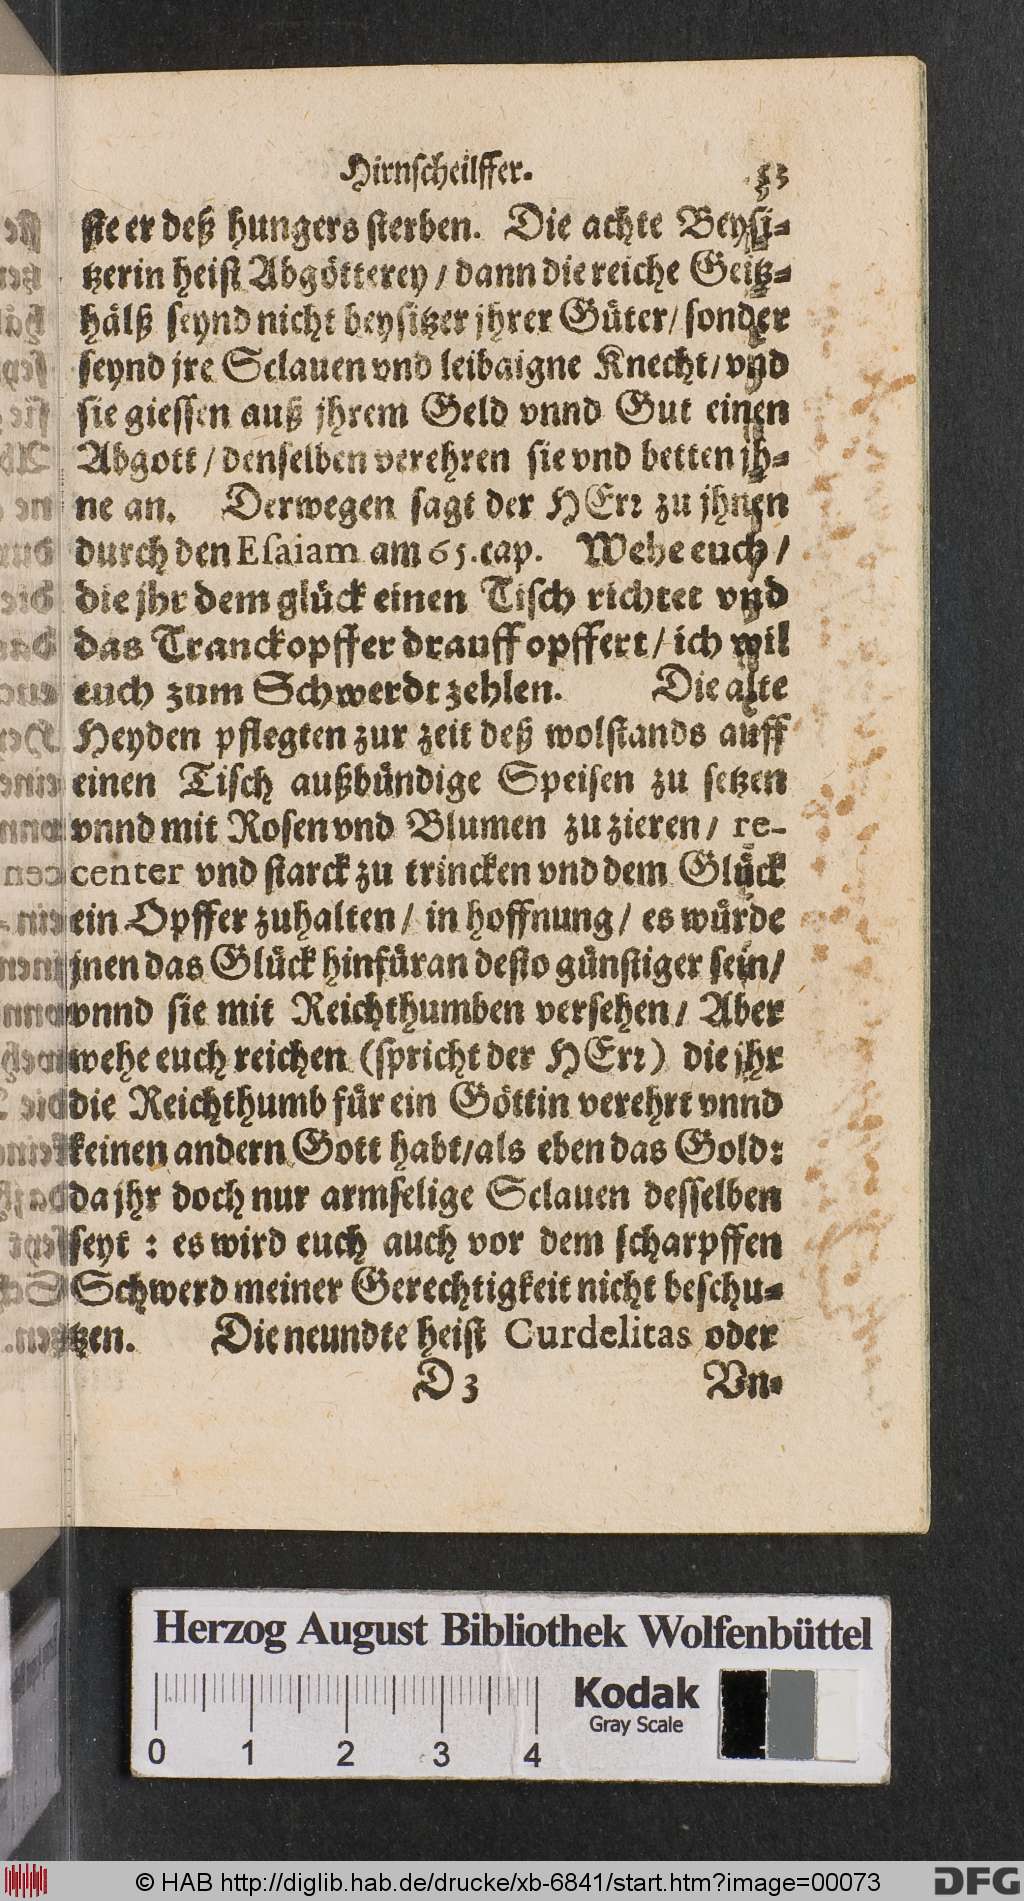 Hirnscheilffer. 53
ste er deß hungers sterben. Die achte Beysi-
tzerin heist Abgötterey / dann die reiche Geitz-
hälß seynd nicht beysitzer jhrer Güter / sonder
seynd jre Sclauen vnd leibaigne Knecht / vnd
sie giessen auß jhrem Geld vnnd Gut einen
Abgott / denselben verehren sie vnd betten jh-
ne an. Derwegen sagt der HErr zu jhnen
durch den Esaiam am 65. cap. Wehe euch /
die jhr dem glück einen Tisch richtet vnd
das Tranckopffer drauff opffert / ich wil
euch zum Schwerdt zehlen. Die alte
Heyden pflegten zur zeit deß wolstands auff
einen Tisch außbündige Speisen zu setzen
vnnd mit Rosen vnd Blumen zu zieren / re-
center vnd starck zu trincken vnd dem Glück
ein Opffer zuhalten / in hoffnung / es würde
jnen das Glück hinfüran desto günstiger sein /
vnnd sie mit Reichthumben versehen / Aber
wehe euch reichen (spricht der HErr) die jhr
die Reichthumb für ein Göttin verehrt vnnd
keinen andern Gott habt / als eben das Gold:
da jhr doch nur armselige Sclauen desselben
seyt : es wird euch auch vor dem scharpffen
Schwerd meiner Gerechtigkeit nicht beschu-
tzen. Die neundte heist Curdelitas oder
D 3 Vn-
Herzog August Bibliothek Wolfenbüttel
Kodak
Gray Scale
0 1 2 3 4
© HAB http://diglib.hab.de/drucke/xb-6841/start.htm?image=00073
DFG